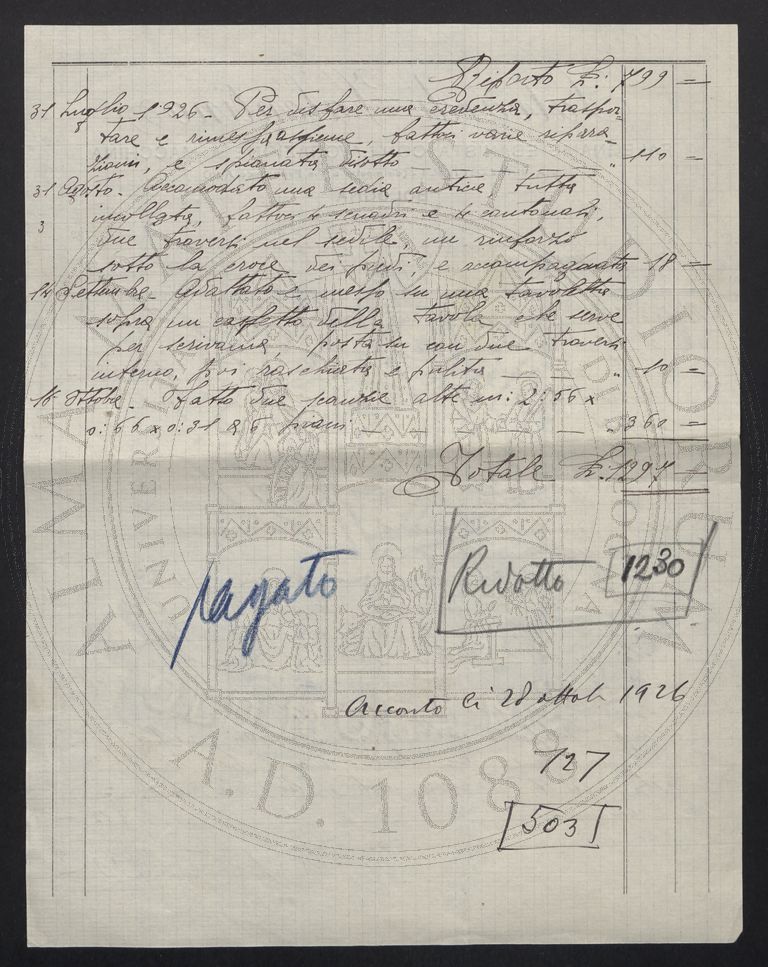 Riporto L: 799 =
31 Luglio 1926 - Per disfare una credenza, traspor-
tare e rimessa assieme, fattoci varie ripara-
zioni, e spianata disotto — — " 110 =
31 Agosto - Accomodato una sedia antica tutta
3 incollata, fattoci 4 scuadri e 4 cantonali,
due traversi nel sedile, un rinforzo
sotto la croce dei piedi, e accompagnata 18 =
14 Settembre - Adattato e messo su una tavoletta
sopra un cassetto della tavola che serve
per scrivania, posta su con due traversi
interno, poi raschiata e pulita — " 10 =
16 Ottobre - Fatto due scanzie alte m: 2:56 x
0:66 x 0:31 a 6 piani — — — 360 =
Totale L: 1297 =
pagato
Ridotto 1230
Acconto li 28 ottob 1926
727
503
ALMA MATER STUDIORUM
A.D. 1088